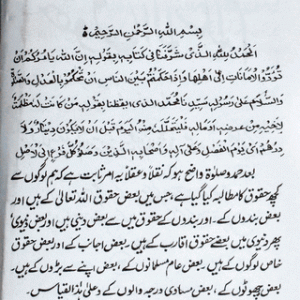 بِسْمِ اللهِ الرَّحْمٰنِ الرَّحِيْمِ
اَلْحَمْدُ لِلّٰهِ الَّذِىْ شَرَّفَنَا فِىْ كِتَابِهٖ بِقَوْلِهٖ اِنَّ اللهَ يَاْمُرُكُمْ اَنْ
تُؤَدُّوا الْاَمَانَاتِ اِلٰى اَهْلِهَا وَاِذَا حَكَمْتُمْ بَيْنَ النَّاسِ اَنْ تَحْكُمُوْا بِالْعَدْلِ وَالصَّلٰوةُ
وَالسَّلَامُ عَلٰى رَسُوْلِهٖ سَيِّدِنَا مُحَمَّدِ الَّذِىْ اَيْقَظَنَا بِقَوْلِهٖ مَنْ كَانَتْ لَهٗ مَظْلِمَةٌ
لِاَخِيْهِ مِنْ عِرْضِهٖ اَوْ مَالِهٖ فَلْيَتَحَلَّلْ مِنْهُ الْيَوْمَ قَبْلَ اَنْ لَا يَكُوْنَ دِيْنَارٌ وَّلَا
دِرْهَمٌ اَىْ يَوْمَ الْفَصْلِ وَعَلٰى اٰلِهٖ وَاَصْحَابِهِ الَّذِيْنَ وَصَلُوْا كُلَّ فَرْعٍ اِلٰى الْاَصْلِ
بعد حمد و صلوٰة واضح ہو کہ نقلاً و عقلاً یہ امر ثابت ہے کہ ہم لوگوں سے
کچھ حقوق کا مطالبہ کیا گیا ہے، جس میں بعض حقوق اللہ تعالیٰ کے ہیں اور
بعض بندوں کے۔ اور بندوں کے حقوق میں سے بعض دینی ہیں اور بعض دنیوی،
پھر دنیوی میں بعض حقوق اقارب کے ہیں۔ بعض اجانب کے اور بعض
خاص لوگوں کے ہیں۔ بعض عام مسلمانوں کے۔ بعض اپنے سے بڑوں کے ہیں۔
بعض چھوٹوں کے، بعض مساوی درجہ والوں کے و علیٰ ہذا القیاس۔